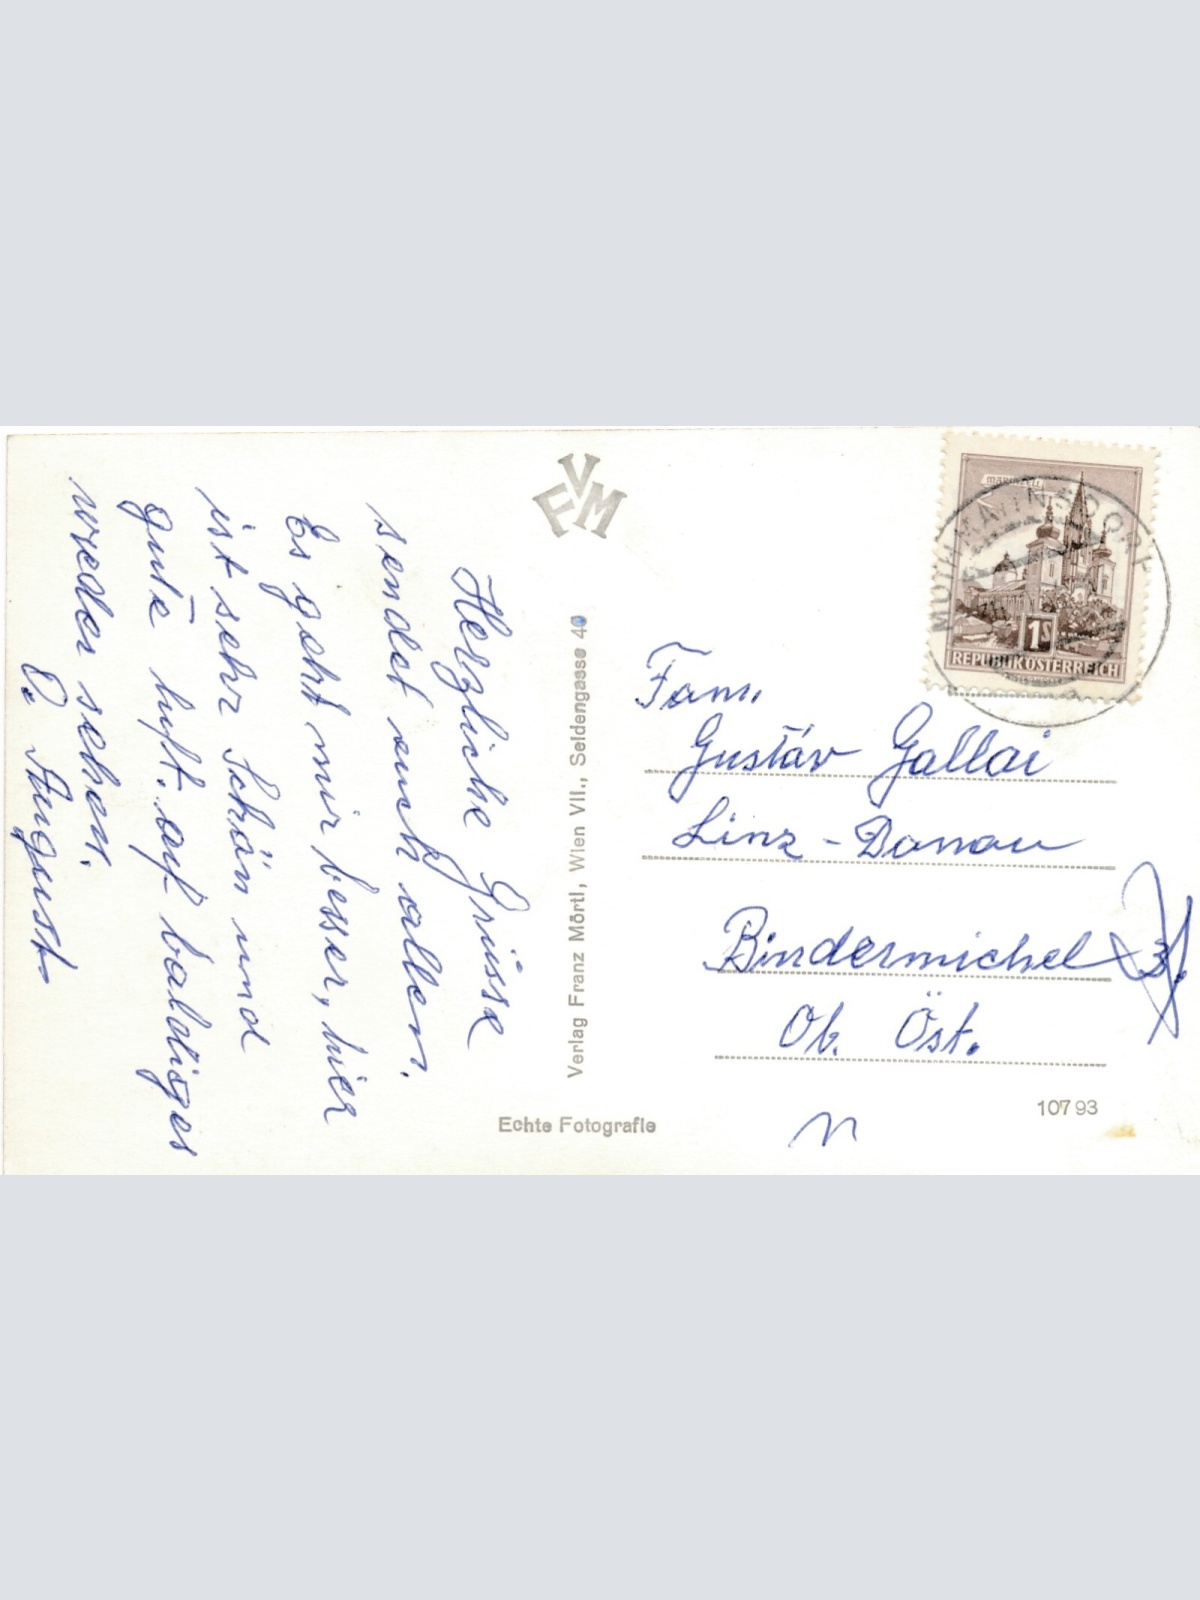 Herzliche Grüsse
sendet euch allen.
Es geht mir besser, hier
ist sehr Schön und
gute luft. auf baldiges
wieder sehen.
O. August
FVM
Verlag Franz Mörtl, Wien VII., Seidengasse
Echte Fotografie
MARIAZELL
1S
REPUBLIK ÖSTERREICH
Fam.
Gustáv Gallai
Linz - Donau
Bindermichel
Ob. Öst.
107 93